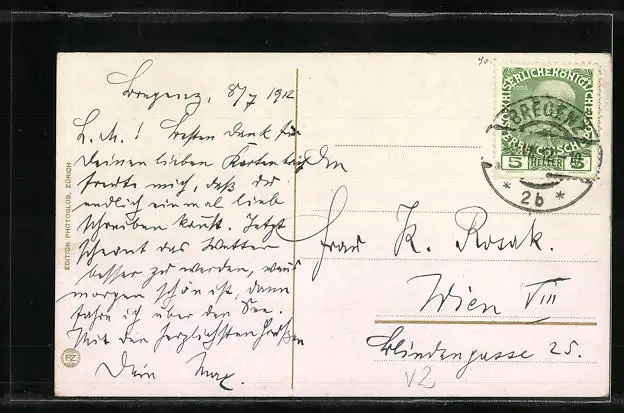 Bregenz, 8/7 1912
L. M.! Besten Dank für
Deinen lieben Kartenbrief
freute mich, daß du
endlich einmal lieb
schreiben kannst. Jetzt
scheint das Wetter
besser zu werden, wenns
morgen schön ist, dann
fahre ich über den See.
Mit den herzlichsten Grüßen
Dein Max.
EDITION PHOTOGLOB, ZÜRICH
PZ
An
Frau K. Rosak.
Wien VIII
Blindengasse 25.
V2
1908
5 HELLER 5
BREGENZ
* 2b *